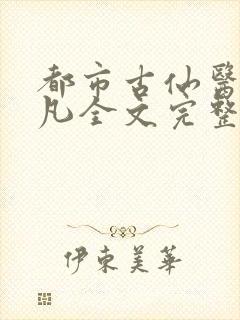 都市古仙醫
凡全文完整
伊東美華